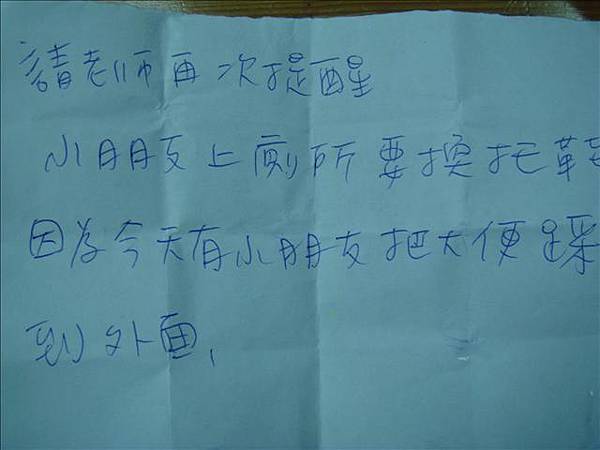 請老师再次提醒
小朋友上廁所要換托鞋
因為今天有小朋友把大便踩
到外面,